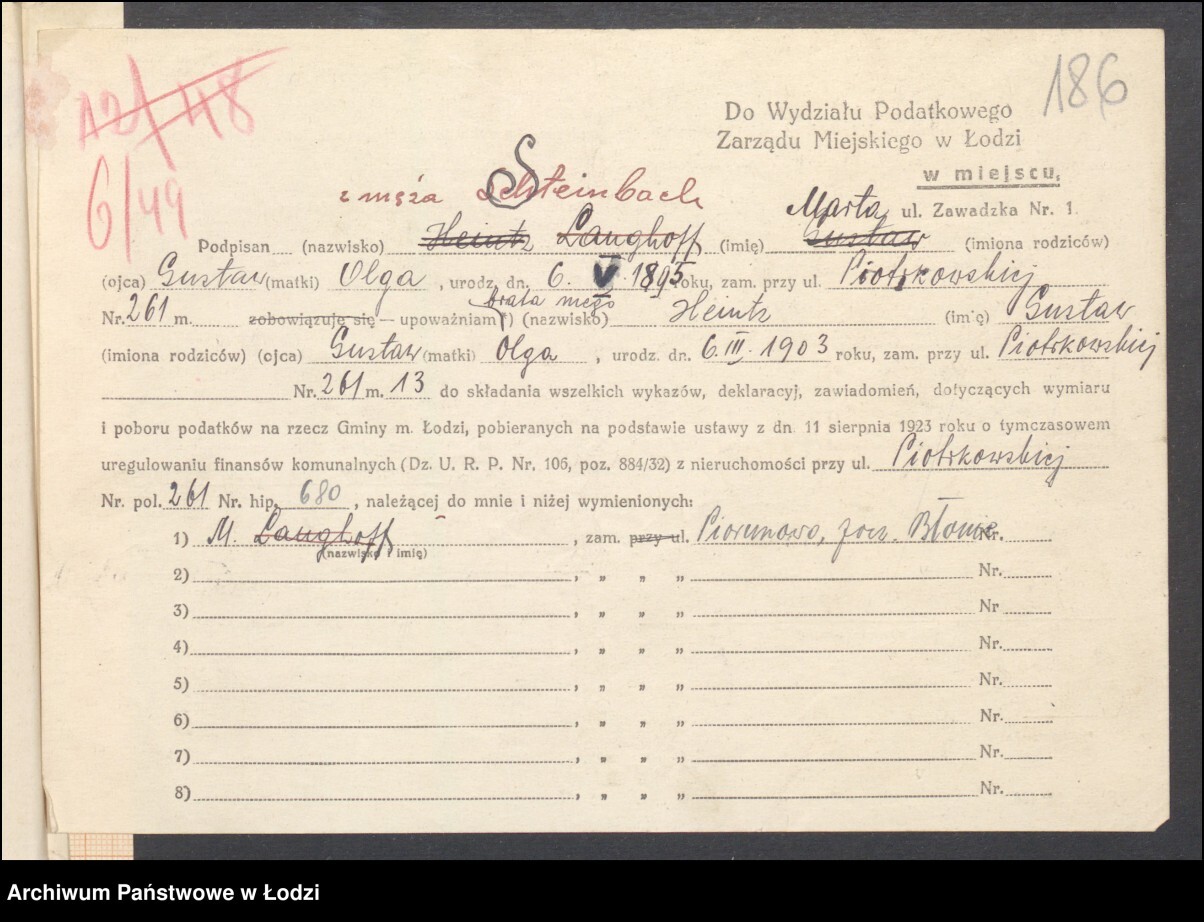 12/48
6/49
186
Do Wydziału Podatkowego
Zarządu Miejskiego w Łodzi
w miejscu,
ul. Zawadzka Nr. 1.
z męża Schteinbach
Marta
Podpisan (nazwisko) Heintz Langhoff (imię) Gustaw (imiona rodziców)
(ojca) Gustaw (matki) Olga, urodz. dn. 6. V. 1895 roku, zam. przy ul. Piotrkowskiej
brata mego
Nr. 261 m. zobowiązuje się — upoważniam (nazwisko) Heintz (imię) Gustaw
(imiona rodziców) (ojca) Gustaw (matki) Olga, urodz. dn. 6. III. 1903 roku, zam. przy ul. Piotrkowskiej
Nr. 261 m. 13 do składania wszelkich wykazów, deklaracyj, zawiadomień, dotyczących wymiaru
i poboru podatków na rzecz Gminy m. Łodzi, pobieranych na podstawie ustawy z dn. 11 sierpnia 1923 roku o tymczasowem
uregulowaniu finansów komunalnych (Dz. U. R. P. Nr. 106, poz. 884/32) z nieruchomości przy ul. Piotrkowskiej
Nr. pol. 261 Nr. hip. 680, należącej do mnie i niżej wymienionych:
1) M. Langhoff, zam. przy ul. Piorunowo, Błonie Nr.
(nazwisko i imię)
2) , „ „ „ Nr.
3) , „ „ „ Nr
4) , „ „ „ Nr.
5) , „ „ „ Nr.
6) , „ „ „ Nr.
7) , „ „ „ Nr.
8) , „ „ „ Nr.
Archiwum Państwowe w Łodzi